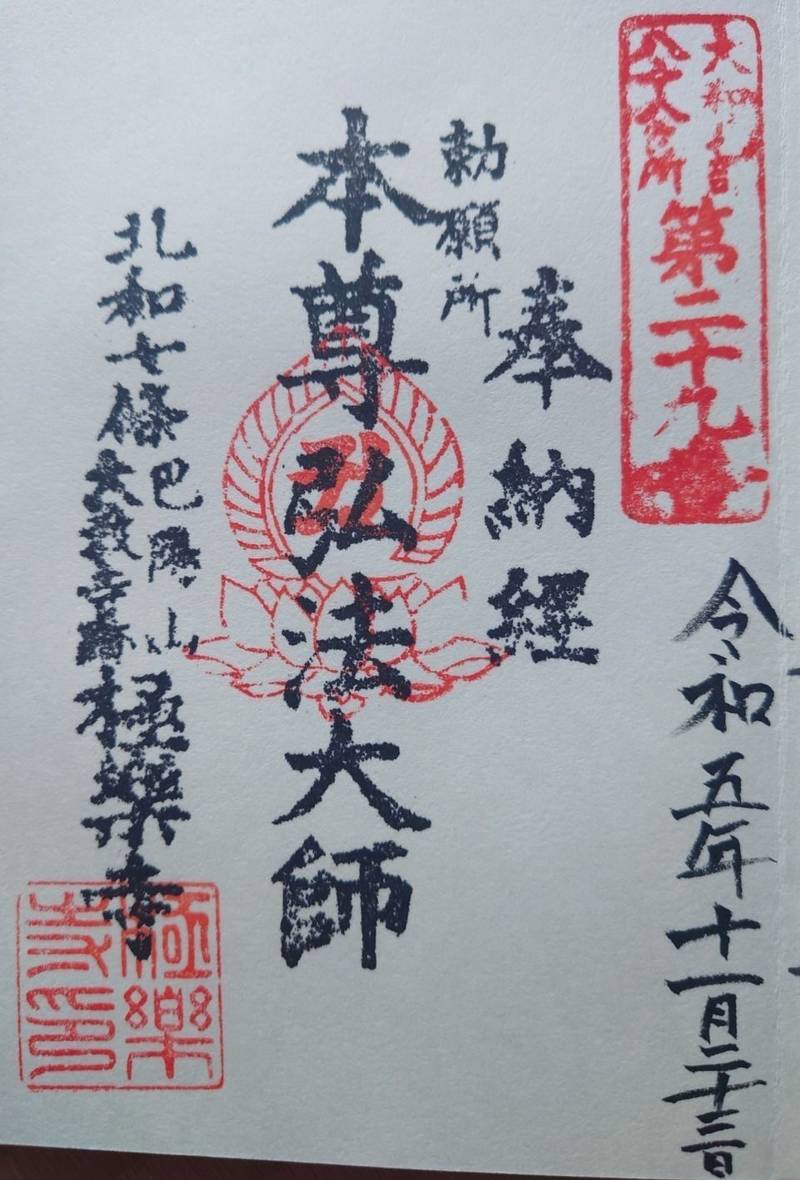 大和
八十八ヶ所
第二十九
令和五年十一月二十三日
奉納經
勅願所
本尊弘法大師
北和七條
山
極樂寺
極樂
寺印